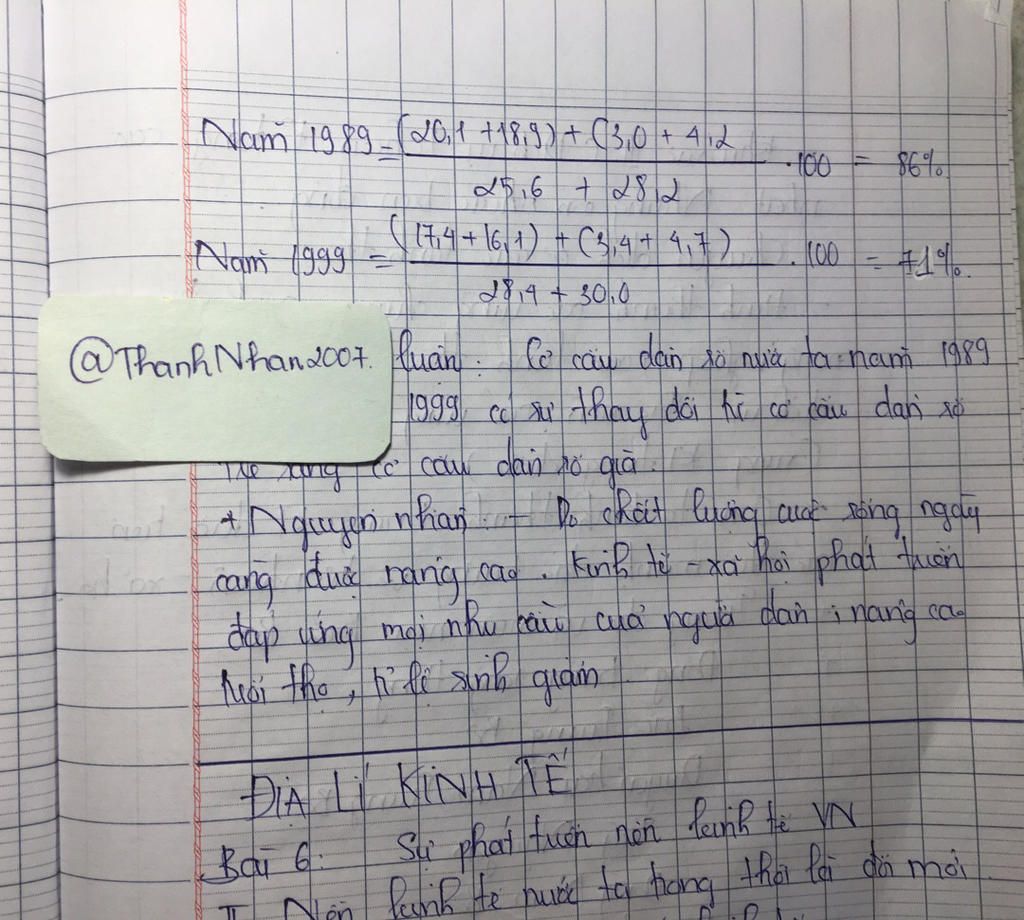 Năm 1989 = (20,1 + 18,9) + (3,0 + 4,2 / 25,6 + 28,2 . 100 = 86%
Năm 1999 = (17,4 + 16,1) + (3,4 + 4,7) / 28,4 + 30,0 . 100 = 71%.
@ThanhNhan2007. luận: Cơ cấu dân số nước ta năm 1989
1999 có sự thay đổi từ cơ cấu dân số
trẻ sang cơ cấu dân số già.
* Nguyên nhân: - Do chất lượng cuộc sống ngày
càng được nâng cao. Kinh tế - xã hội phát triển
đáp ứng mọi nhu cầu của người dân, nâng cao
tuổi thọ, tỉ lệ sinh giảm
ĐỊA LÍ KINH TẾ
Bài 6: Sự phát triển nền kinh tế VN
Nền kinh tế nước ta trong thời kì đổi mới